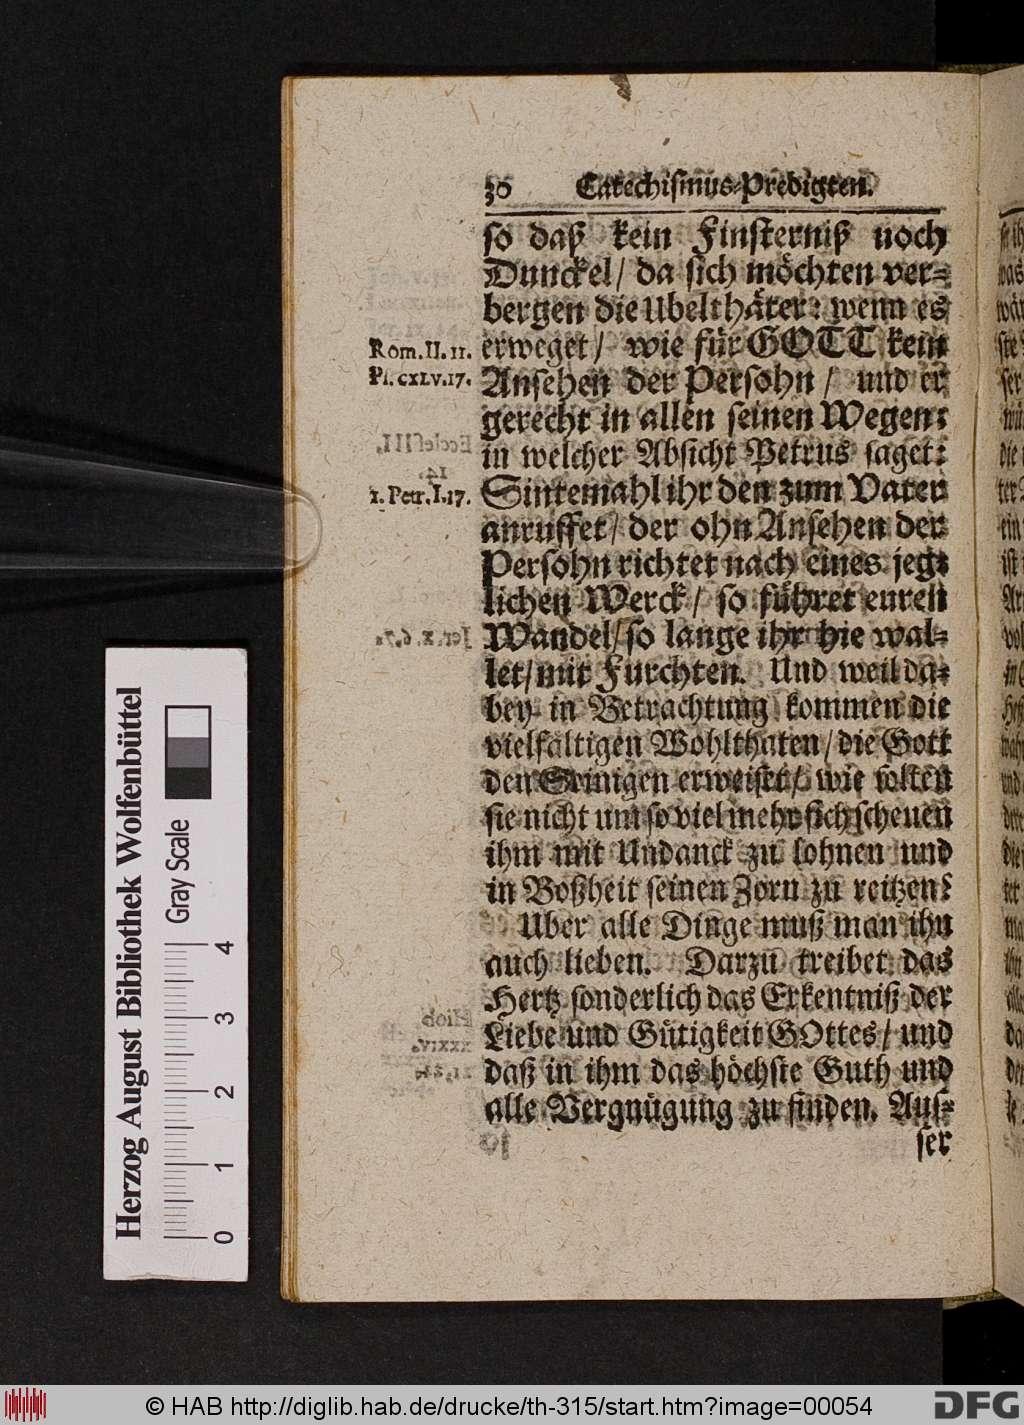 30 Catechismus-Predigten.
so daß kein Finsterniß noch
Dunckel / da sich möchten ver-
bergen die Ubelthäter: wenn es
Rom. II. 11. erweget / wie für GOTT kein
Ps. CXLV. 17. Ansehen der Persohn / und er
gerecht in allen seinen Wegen:
in welcher Absicht Petrus saget:
1. Petr. I. 17. Sintemahl ihr den zum Vater
anruffet / der ohn Ansehen der
Persohn richtet nach eines jeg-
lichen Werck / so führet euren
Wandel / so lange ihr hie wal-
let / mit Furchten. Und weil da-
bey in Betrachtung kommen die
vielfältigen Wohlthaten / die Gott
den Seinigen erweiset / wie solten
sie nicht um so viel mehr sich scheuen
ihm mit Undanck zu lohnen und
in Boßheit seinen Zorn zu reitzen?
Uber alle Dinge muß man ihn
auch lieben. Darzu treibet das
Hertz sonderlich das Erkentniß der
Liebe und Gütigkeit GOttes / und
daß in ihm das höchste Guth und
alle Vergnügung zu finden. Aus-
ser
Herzog August Bibliothek Wolfenbüttel
Gray Scale
0 1 2 3 4
© HAB http://diglib.hab.de/drucke/th-315/start.htm?image=00054
DFG